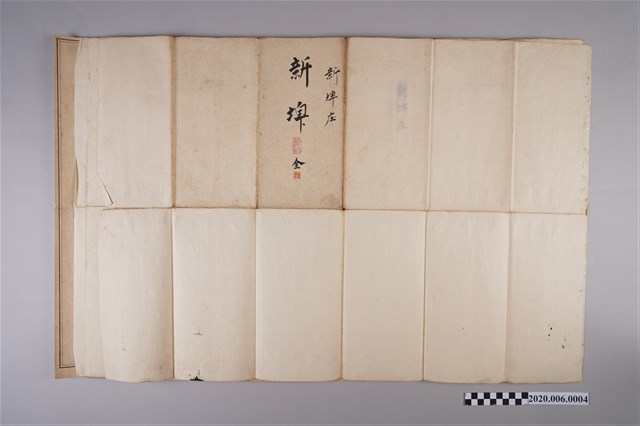 新埤庄
新埤
全
2020.006.0004